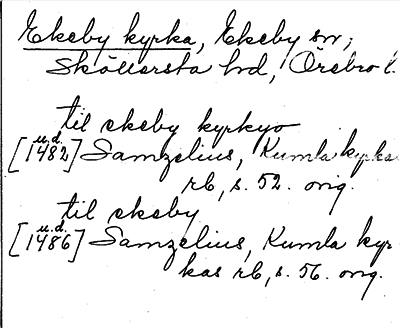 Ekeby kyrka, Ekeby sn;
Sköllersta hd, Örebro l.
til ekeby kyrkyo
u.d.
[1482] Samzelius, Kumla kyrkas
rb, s. 52. orig.
til ekeby
u.d.
[1486] Samzelius, Kumla kyr-
kas rb, s. 56. orig.